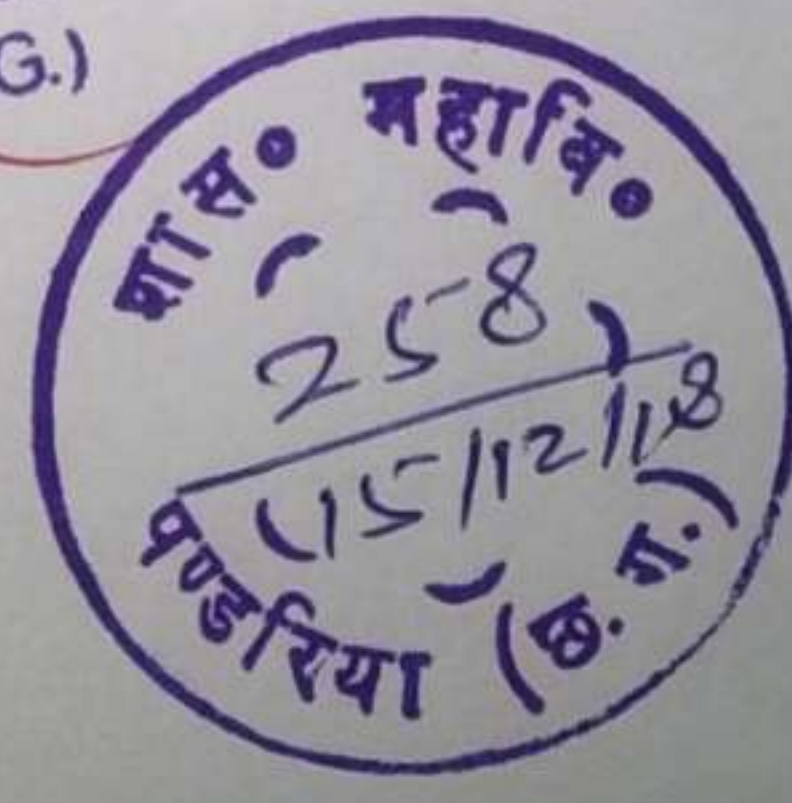 G.)
शास० महावि०
258
15/12/18
पण्डरिया (छ. ग.)